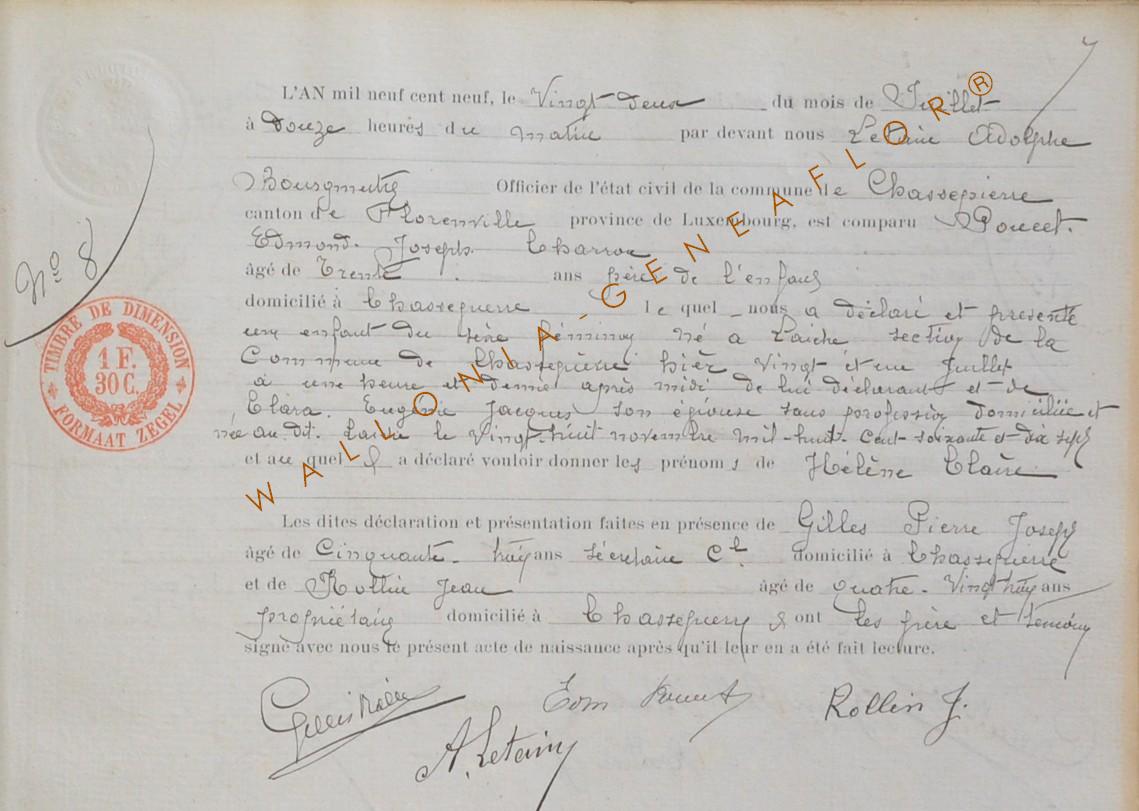 L'AN mil neuf cent neuf, le Vingt-deux du mois de Juillet
à Douze heures du matin par devant nous Letain Adolphe
Bourgmestre Officier de l'état civil de la commune de Chassepierre
canton de Florenville province de Luxembourg, est comparu Poncet.
Edmond. Joseph. Charron
âgé de Trente ans père de l'enfant
domicilié à Chassepierre le quel nous a déclaré et présenté
un enfant du sexe féminin né a Laiche section de la
Commune de Chassepierre hier Vingt et un Juillet
a une heure et demie après midi de lui déclarant et de
Clara. Eugénie Jacques son épouse sans profession domiciliée et
née au dit. Laiche le Vingt-huit novembre mil-huit-cent-soixante et dix sept
et au quel il a déclaré vouloir donner les prénoms de Hélène Claire
Les dites déclaration et présentation faites en présence de Gilles Pierre Joseph
âgé de Cinquante-huit ans secrétaire Cl domicilié à Chassepierre
et de Rollin Jean âgé de quatre-Vingt huit ans
propriétaire domicilié à Chassepierre ont les père et témoins
signé avec nous le présent acte de naissance après qu'il leur en a été fait lecture.
Edm Rollin J.
A. Letain
No 8
TIMBRE DE DIMENSION
1 F.
30 C.
FORMAAT ZEGEL
WALLONIA-GENEAFLOR®